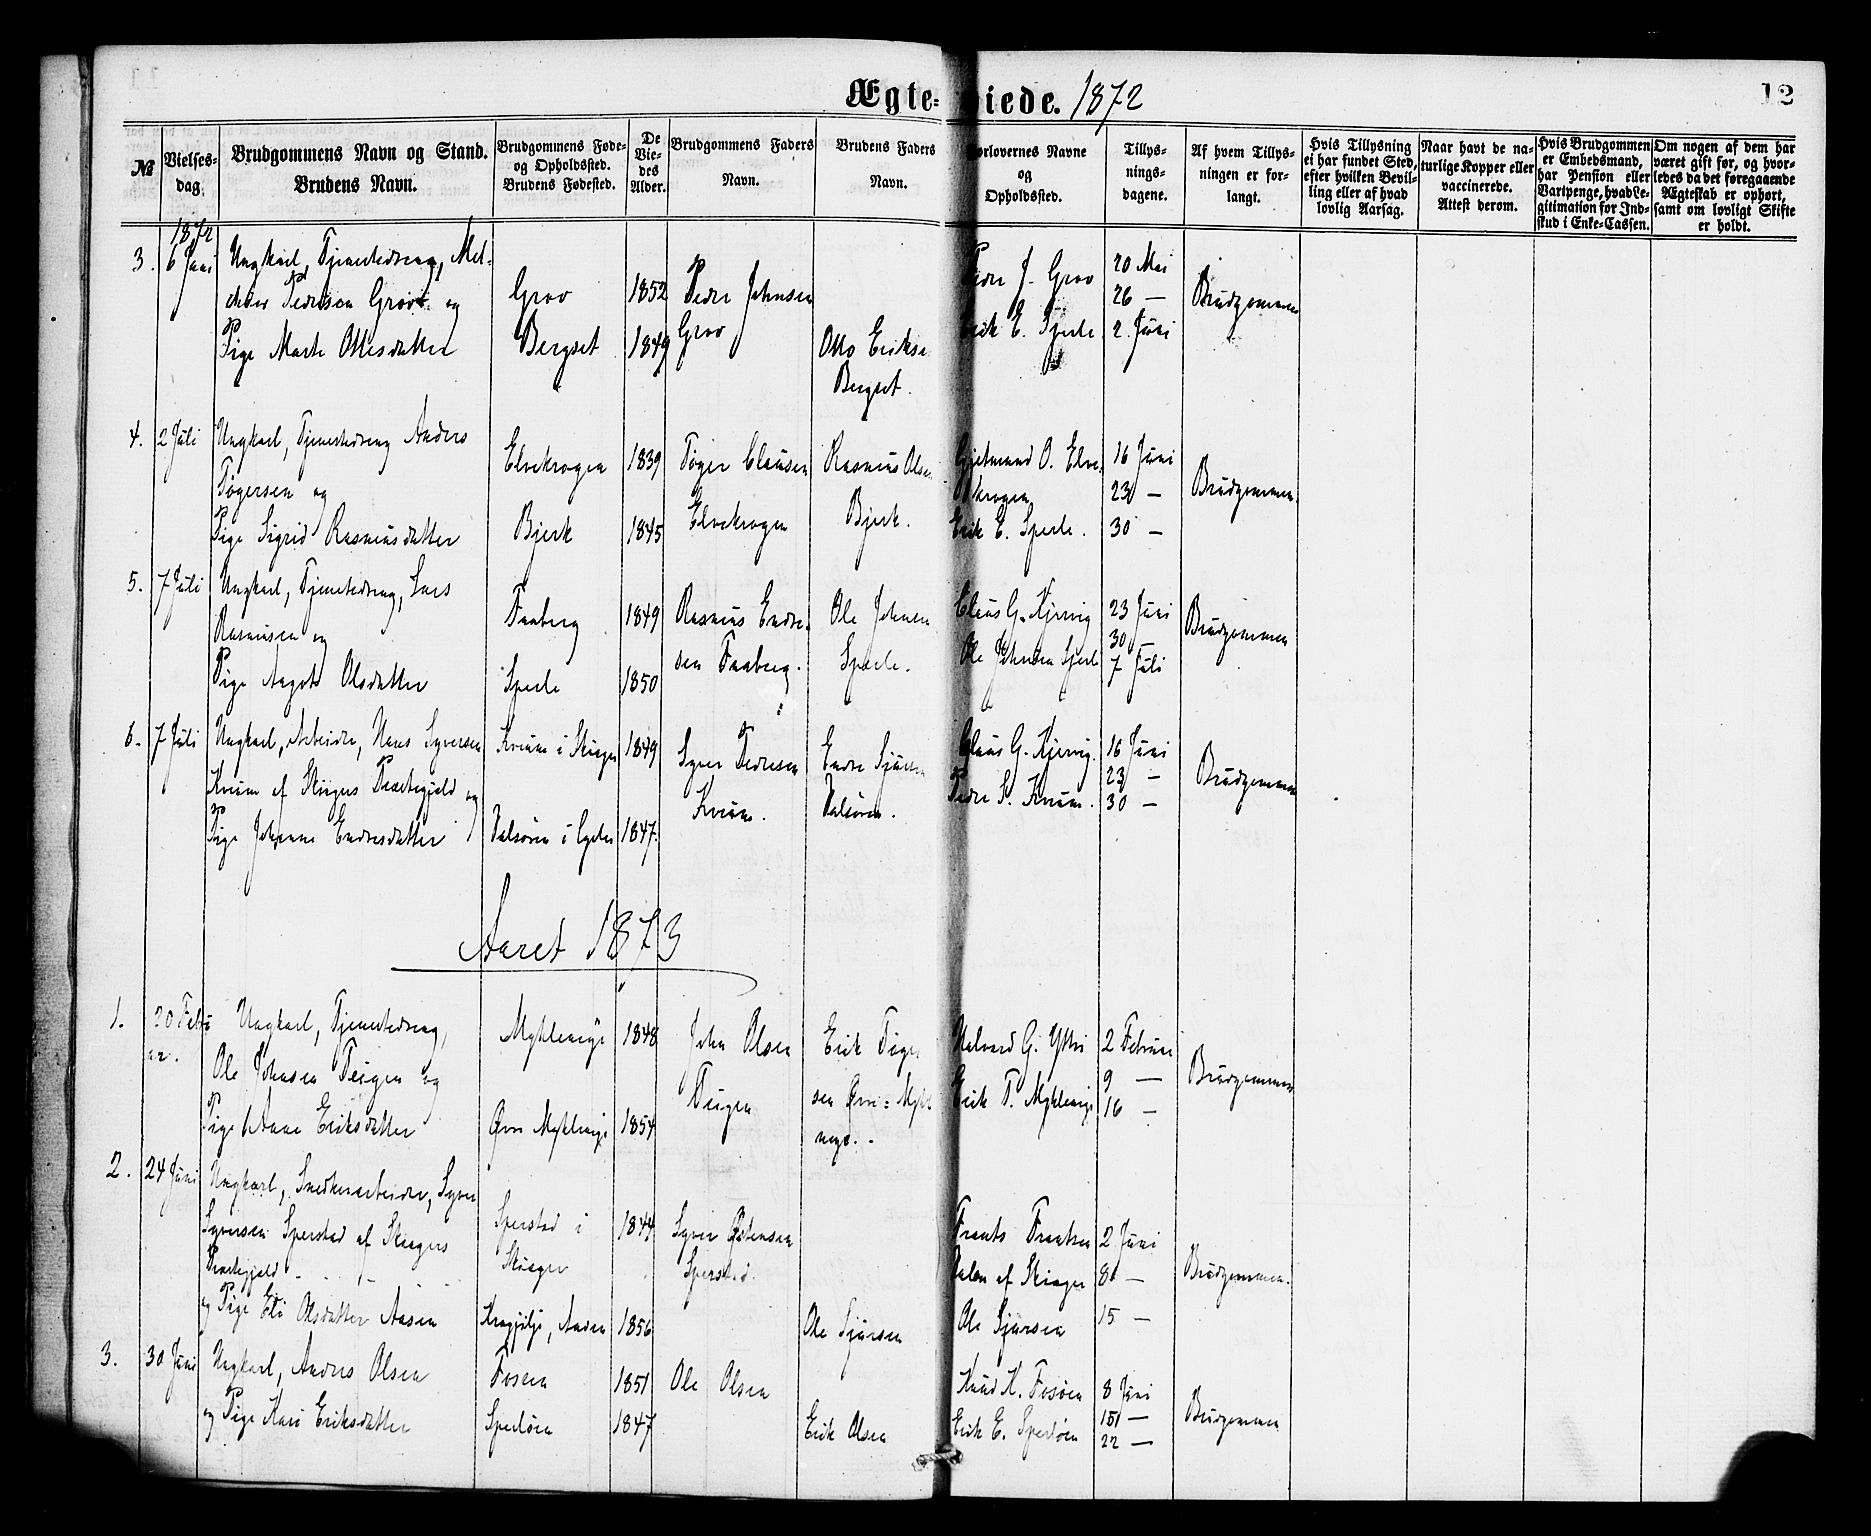 Ægte- viede. 1872
12
№
Vielses-dag.
Brudgommens Navn og Stand. Brudens Navn.
Brudgommens Føde- og Opholdssted. Brudens Fødested.
De Vie-des Alder.
Brudgommens Faders Navn.
Brudens Faders Navn.
Forlovernes Navne og Opholdssted.
Tillys-nings-dagene.
Af hvem Tillys-ningen er for-langt.
Hvis Tillysning ei har fundet Sted, efter hvilken Bevil-ling eller af hvad lovlig Aarsag.
Naar havt de na-turlige Kopper eller vaccinerede. Attest derom.
Hvis Brudgommen er Embedsmand, har Pension eller Vartpenge, hvad Le-gitimation for Ind-skud i Enke-Cassen.
Om nogen af dem har været gift før, og hvor-ledes da det foregaaende Ægteskab er ophørt, samt om lovligt Skifte er holdt.
1872
3. 6 Juni Ungkarl, Tjenestedreng, Mel-
chior Pedersen Grov og Grov 1852 Peder Johnsen Grov
Pige Marte Ottesdatter Bergset 1849 Otto Erikse Bergset.
Peder J. Grov 20 Mai
26 — Brudgommen
Erik E. Sperle 2. Juni
4. 2 Juli Ungkarl, Tjenestedreng Anders
Tøgersen og Elvekrogen 1839 Tøger Clausen Elvekrogen
Pige Sigrid Rasmusdatter Bjerk 1845 Rasmus Olsen Bjerk.
Gjetmund O. Elve-krogen 16 Juni
23 — Brudgommen.
Erik E. Sperle. 30 —
5. 7 Juli Ungkarl, Tjenestedreng, Lars
Rasmussen og Faaberg 1849 Rasmus Endre-sen Faaberg.
Pige Aagot Olsdatter Sperle 1850 Ole Johnsen Sperle.
Claus G. Kjervig 23 Juni
30 — Brudgommen
Ole Johnsen Sperle 7 Juli
6. 7 Juli Ungkarl, Arbeider, Hans Syversen
Kvium af Skiagers Præstegjeld og Kvium i Skiager 1849 Syver Pedersen Kvium.
Pige Johanne Endresdatter Dalsøren i Lyster 1847. Endre Sjursen Dalsøren.
Claus G. Kjervig. 16 Juni
23 — Brudgommen
Peder S. Kvium. 30 —
Aaret 1873
1. 20 Febru-ar. Ungkarl, Tjenestedreng,
Ole Johnsen Teigen og Myklemyr 1848 John Olsen Teigen
Pige Anne Eriksdatter Øvre Myklemyr 1854 Erik Tøger-sen Øvre-Mykle-myr.
Halvard G. Ystri 2 Februar
9 — Brudgommen
Erik T. Myklemyr 16 —
2. 24 Juni Ungkarl, Snedkerarbeider, Syver
Syversen Sperstad af Skiagers Sperstad i Skiager 1844 Syver Østensen Sperstad.
Præstegjeld
og Pige Eli Olsdatter Aasen Krogfilje, Aasen 1856 Ole Sjursen
Frants Frantsen 2 Juni
Dalen af Skiager 8 — Brudgommen.
Ole Sjursen 15 —
3. 30 Juni Ungkarl, Anders Olsen Fossen 1851 Ole Olsen
og Pige Kari Eriksdatter Sperløen 1847 Erik Olsen
Knud K. Fosøen 8 Juni
15 — Brudgommen
Erik E. Sperløen 22 —